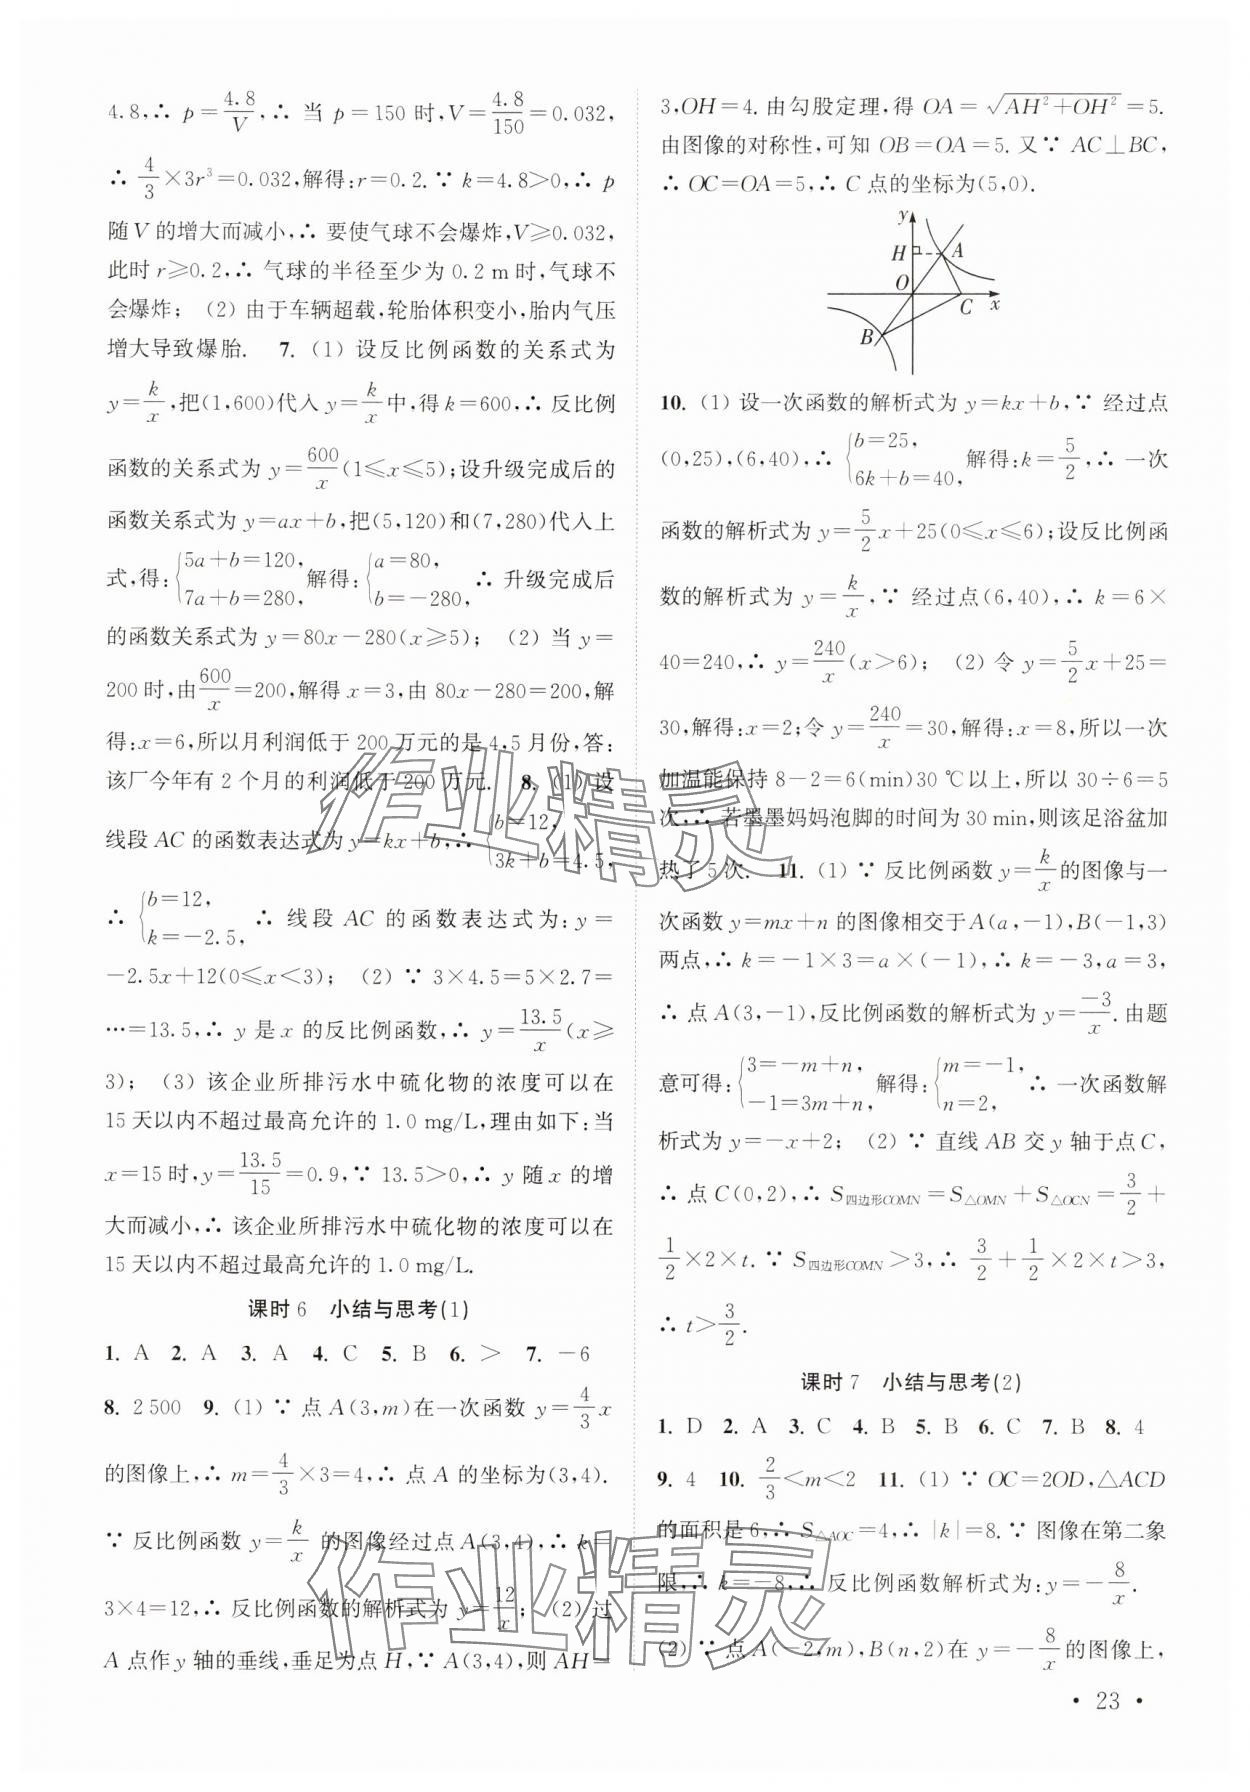 4.8,∴ p=4.8/V,∴ 当 p=150 时,V=4.8/150=0.032,
∴ 4/3×3r³=0.032,解得:r=0.2.∵ k=4.8>0,∴ p
随V的增大而减小,∴ 要使气球不会爆炸,V≥0.032,
此时 r≥0.2,∴ 气球的半径至少为 0.2 m 时,气球不
会爆炸; (2) 由于车辆超载,轮胎体积变小,胎内气压
增大导致爆胎. 7. (1) 设反比例函数的关系式为
y=k/x,把(1,600)代入 y=k/x中,得 k=600,∴ 反比例
函数的关系式为 y=600/x(1≤x≤5);设升级完成后的
函数关系式为 y=ax+b,把(5,120)和(7,280)代入上
式,得:{5a+b=120, 7a+b=280, 解得:{a=80, b=-280, ∴ 升级完成后
的函数关系式为 y=80x-280(x≥5); (2) 当 y=
200 时,由600/x=200,解得 x=3,由 80x-280=200,解
得:x=6,所以月利润低于 200 万元的是 4,5 月份,答:
该厂今年有 2 个月的利润低于 200 万元. 8. (1) 设
线段 AC 的函数表达式为 y=kx+b,∴ {b=12, 3k+b=4.5,
∴ {b=12, k=-2.5, ∴ 线段 AC 的函数表达式为:y=
-2.5x+12(0≤x<3); (2) ∵ 3×4.5=5×2.7=
…=13.5,∴ y 是 x 的反比例函数,∴ y=13.5/x(x≥
3); (3) 该企业所排污水中硫化物的浓度可以在
15 天以内不超过最高允许的 1.0 mg/L,理由如下:当
x=15 时,y=13.5/15=0.9,∵ 13.5>0,∴ y 随 x 的增
大而减小,∴ 该企业所排污水中硫化物的浓度可以在
15 天以内不超过最高允许的 1.0 mg/L.
课时 6 小结与思考(1)
1. A 2. A 3. A 4. C 5. B 6. > 7. -6
8. 2 500 9. (1) ∵ 点 A(3,m)在一次函数 y=4/3x
的图像上,∴ m=4/3×3=4,∴ 点 A 的坐标为(3,4).
∵ 反比例函数 y=k/x 的图像经过点 A(3,4),∴ k=
3×4=12,∴ 反比例函数的解析式为 y=12/x; (2) 过
A 点作 y 轴的垂线,垂足为点 H,∵ A(3,4),则 AH=
3,OH=4. 由勾股定理,得 OA=√(AH²+OH²)=5.
由图像的对称性,可知 OB=OA=5. 又∵ AC⊥BC,
∴ OC=OA=5,∴ C 点的坐标为(5,0).
y
H
A
O
C
x
B
10. (1) 设一次函数的解析式为 y=kx+b,∵ 经过点
(0,25),(6,40),∴ {b=25, 6k+b=40, 解得:k=5/2,∴ 一次
函数的解析式为 y=5/2x+25(0≤x≤6);设反比例函
数的解析式为 y=k/x,∵ 经过点(6,40),∴ k=6×
40=240,∴ y=240/x(x>6); (2) 令 y=5/2x+25=
30,解得:x=2;令 y=240/x=30,解得:x=8,所以一次
加温能保持 8-2=6(min)30 ℃以上,所以 30÷6=5
次,∴ 若墨墨妈妈泡脚的时间为 30 min,则该足浴盆加
热了 5 次. 11. (1) ∵ 反比例函数 y=k/x的图像与一
次函数 y=mx+n 的图像相交于 A(a,-1),B(-1,3)
两点,∴ k=-1×3=a×(-1),∴ k=-3,a=3,
∴ 点 A(3,-1),反比例函数的解析式为 y=-3/x.由题
意可得:{3=-m+n, -1=3m+n, 解得:{m=-1, n=2, ∴ 一次函数解
析式为 y=-x+2; (2) ∵ 直线 AB 交 y 轴于点 C,
∴ 点 C(0,2),∴ S四边形COMN=S△OMN+S△OCN=3/2+
1/2×2×t.∵ S四边形COMN>3,∴ 3/2+1/2×2×t>3,
∴ t>3/2.
课时 7 小结与思考(2)
1. D 2. A 3. C 4. B 5. B 6. C 7. B 8. 4
9. 4 10. 2/3<m<2 11. (1) ∵ OC=2OD,△ACD
的面积是 6,∴ S△AOC=4,∴ |k|=8.∵ 图像在第二象
限,∴ k=-8,∴ 反比例函数解析式为:y=-8/x.
(2) ∵ 点 A(-2,m),B(n,2)在 y=-8/x的图像上,
• 23 •
作业精灵
作业精灵